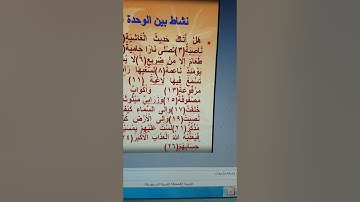 نشاط بين الوحدة
هَلْ أَتَاكَ حَدِيثُ الْغَاشِيَةِ
نَاصِبَةٌ(٣)تَصْلَى نَارًا حَامِيَةً
طَعَامٌ إِلَّا مِنْ ضَرِيعٍ(٦)لَا
يَوْمَئِذٍ نَاعِمَةٌ(٨)لِسَعْيِهَا
تَسْمَعُ فِيهَا لَاغِيَةً (١١)
مَرْفُوعَةٌ(١٣) وَأَكْوَابٌ
مَصْفُوفَةٌ(١٥)وَزَرَابِيُّ مَبْثُوثَةٌ
خُلِقَتْ(١٧)وَإِلَى السَّمَاءِ كَيْفَ
نُصِبَتْ(١٩)وَإِلَى الْأَرْضِ
مُذَكِّرٌ(٢١)لَسْتَ عَلَيْهِمْ
فَيُعَذِّبُهُ اللَّهُ الْعَذَابَ الْأَكْبَرَ(٢٤)
حِسَابَهُمْ(٢٦)
العربية (المملكة العربية السعودية)